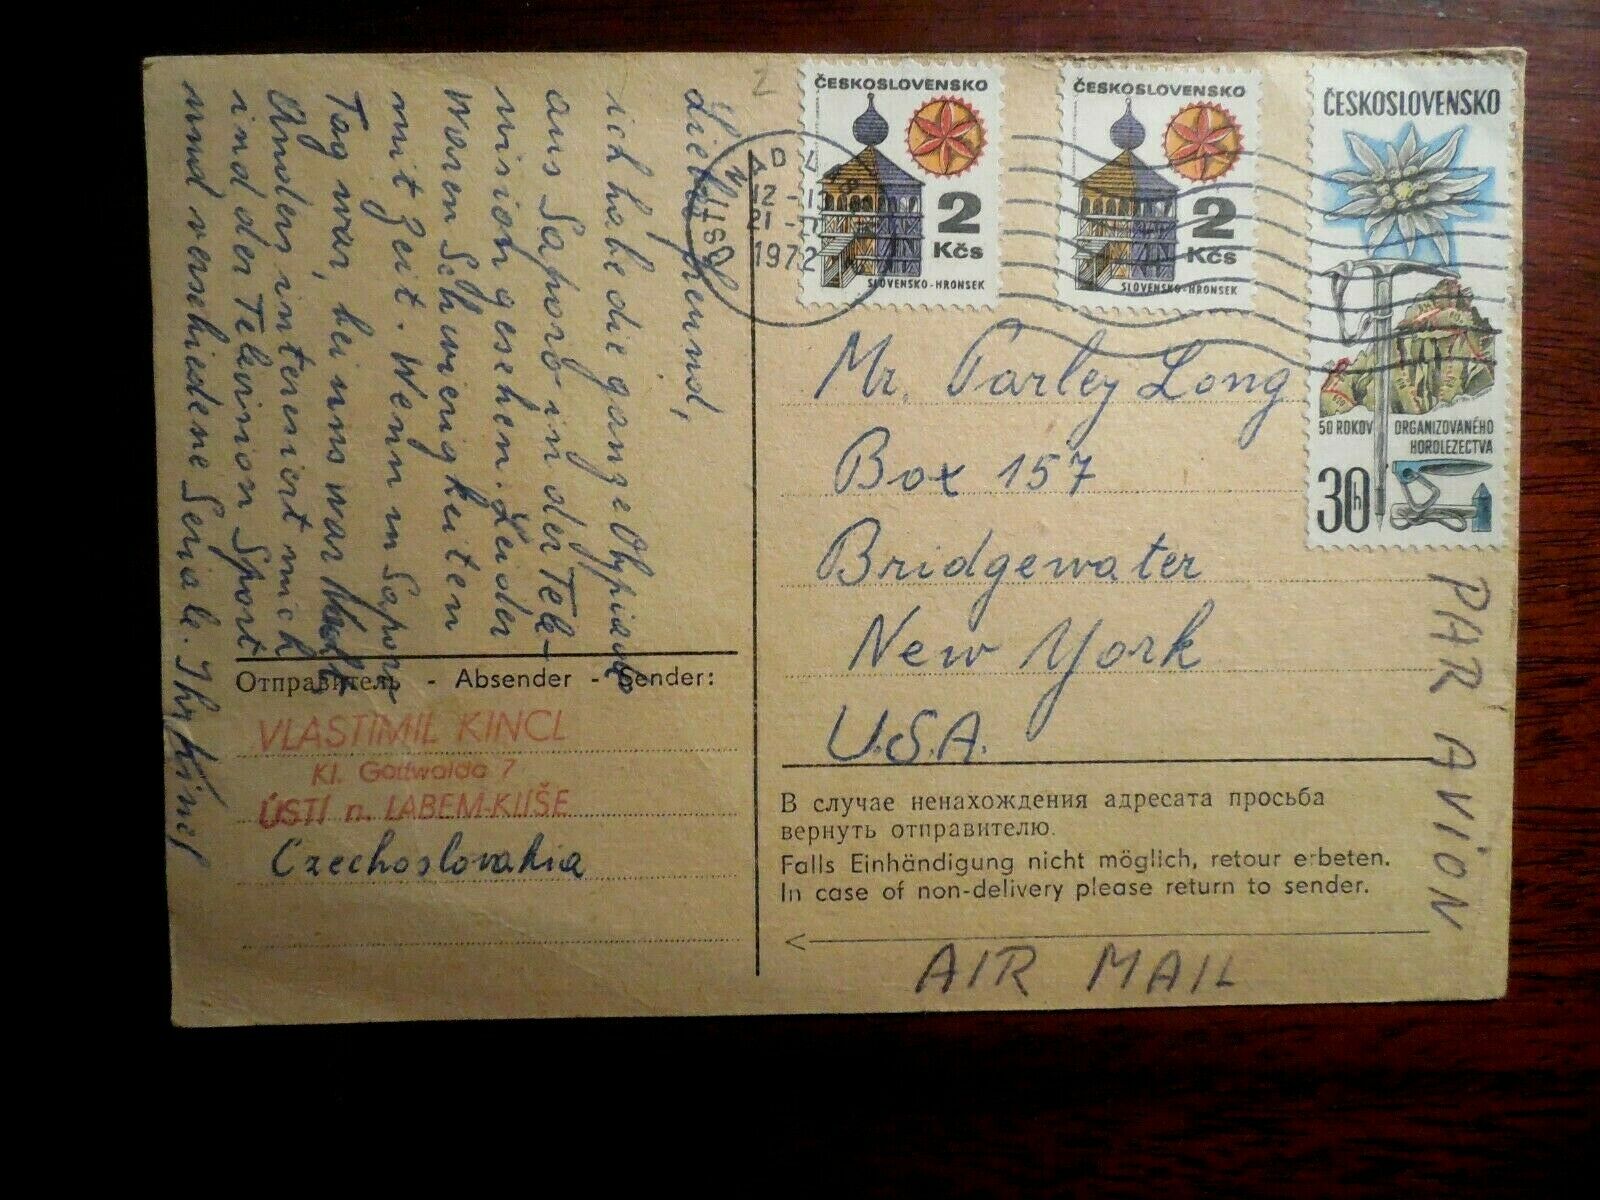 Lieber Freund,
ich habe die ganze Olypiade
aus Saporo in der Tele-
vision gesehen. Leider
waren Schwierigkeiten
mit Zeit. Wenn in Sapor-
Tag war, bei uns war
Anders interesiert mich
in der Television Sport
und verschiedene Seriale. Ihr Kincl
ČESKOSLOVENSKO
2
Kčs
SLOVENSKO-HRONSEK
ČESKOSLOVENSKO
2
Kčs
SLOVENSKO-HRONSEK
ČESKOSLOVENSKO
50 ROKOV ORGANIZOVANÉHO
HOROLEZECTVA
30h
ÚSTÍ N
12
21
1972
Mr. Parley Long
Box 157
Bridgewater
New York
U.S.A.
PAR AVION
Отправитель - Absender - Sender:
VLASTIMIL KINCL
Kl. Gottwalda 7
ÚSTÍ n. LABEM-KLÍŠE
Czechoslovakia
В случае ненахождения адресата просьба
вернуть отправителю.
Falls Einhändigung nicht möglich, retour erbeten.
In case of non-delivery please return to sender.
AIR MAIL